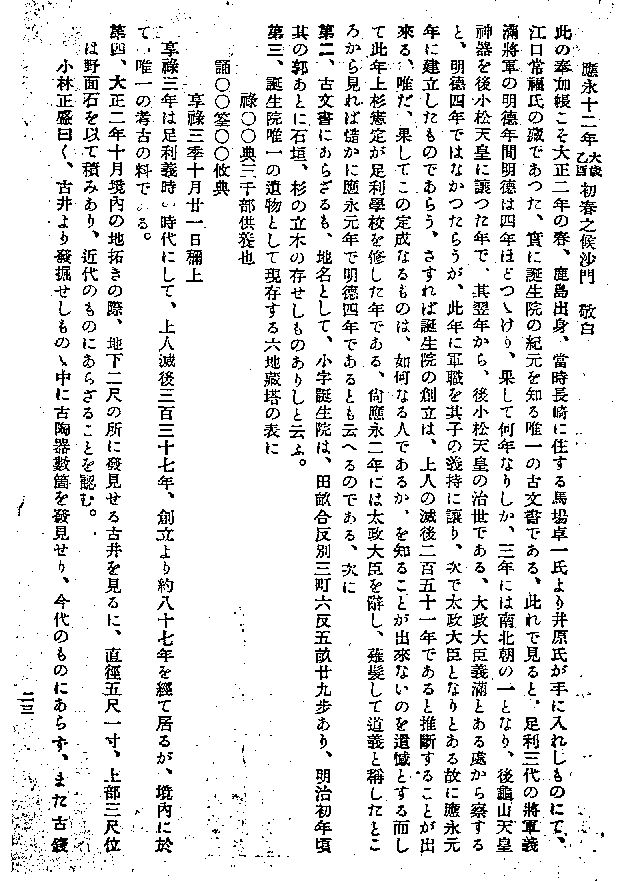 應永十二年大歲乙酉初春之候沙門　敬白
此の奉加帳こそ大正二年の春、鹿島出身、當時長崎に住する馬場卓一氏より井原氏が手に入れしものにて、
江口常福氏の藏であつた、實に誕生院の紀元を知る唯一の古文書である、此れで見ると、足利三代の將軍義
滿將軍の明德年間明德は四年ほどつゞけり、果して何年なりしか、三年には南北朝の一となり、後龜山天皇
神器を後小松天皇に讓つた年で、其翌年から、後小松天皇の治世である、大政大臣義滿とある處から察する
と、明德四年ではなかつたらうが、此年に軍職を其子の義持に讓り、次で太政大臣となりとある故に應永元
年に建立したものであらう、さすれば誕生院の創立は、上人の滅後二百五十一年であると推斷することが出
來る、唯だ、果してこの定成なるものは、如何なる人であるか、を知ることが出來ないのを遺憾とする而し
て此年上杉憲定が足利學校を修した年である、尙應永二年には太政大臣を辭し、薙髮して道義と稱したとこ
ろから見れば慥かに應永元年で明德四年であるとも云へるのである、次に
第二、古文書にあらざるも、地名として、小字誕生院は、田畝合反別三町六反五畝廿九步あり、明治初年頃
其の郭あとに石垣、杉の立木の存せしものありしと云ふ。
第三、誕生院唯一の遺物として現存する六地藏塔の表に
祿〇〇典三千部供養也
誦〇〇〇〇攸典
享祿三季十月廿一日彌上
享祿三年は足利義晴の時代にして、上人滅後三百三十七年、創立より約八十七年を經て居るが、境內に於
て、唯一の考古の料である。
第四、大正二年十月境內の地拓きの際、地下二尺の所に發見せる古井を見るに、直徑五尺一寸、上部三尺位
は野面石を以て積みあり、近代のものにあらざることを認む。
小林正盛曰く、古井より發掘せしものゝ中に古陶器數箇を發見せり、今代のものにあらず、また古錢
二三